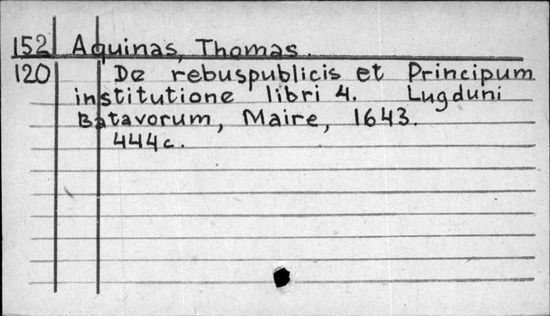 152 Aquinas, Thomas.
120 De rebuspublicis et Principum
institutione libri 4. Lugduni
Batavorum, Maire, 1643.
444c.